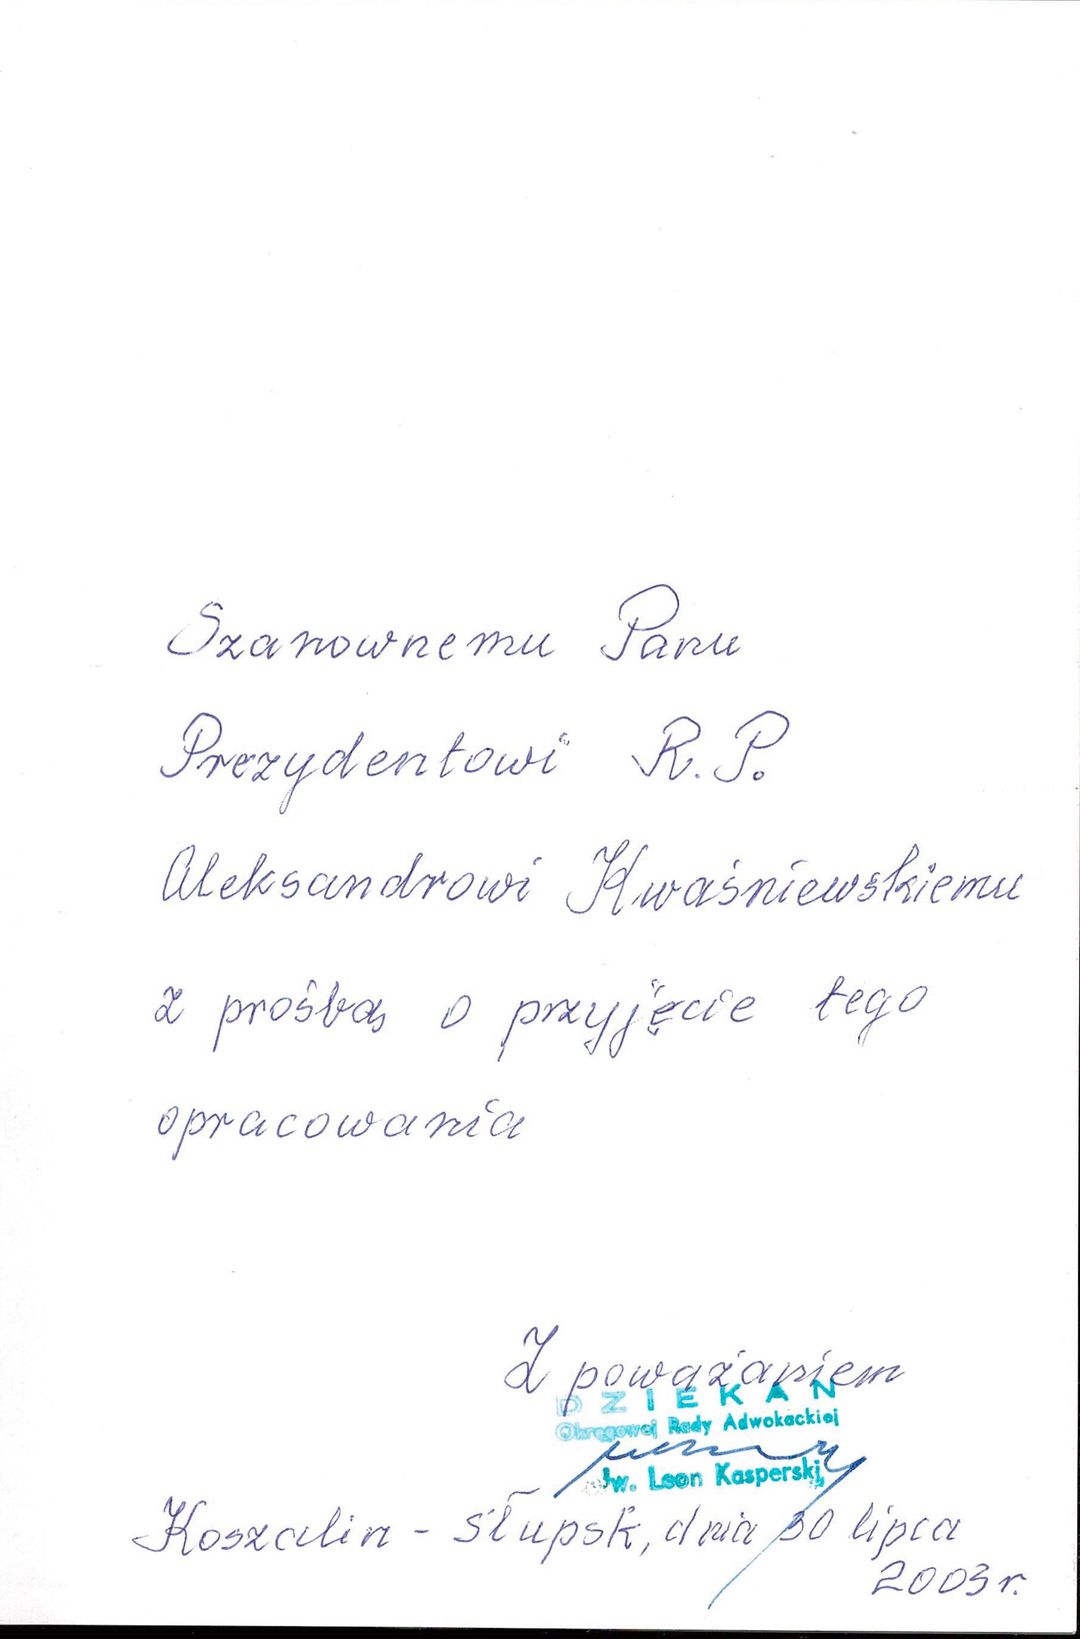 Szanownemu Panu
Prezydentowi R.P.
Aleksandrowi Kwaśniewskiemu
z prośbą o przyjęcie tego
opracowania
Z poważaniem
DZIEKAN
Okręgowej Rady Adwokackiej
Leon Kasperski
Koszalin - Słupsk, dnia 30 lipca
2003 r.